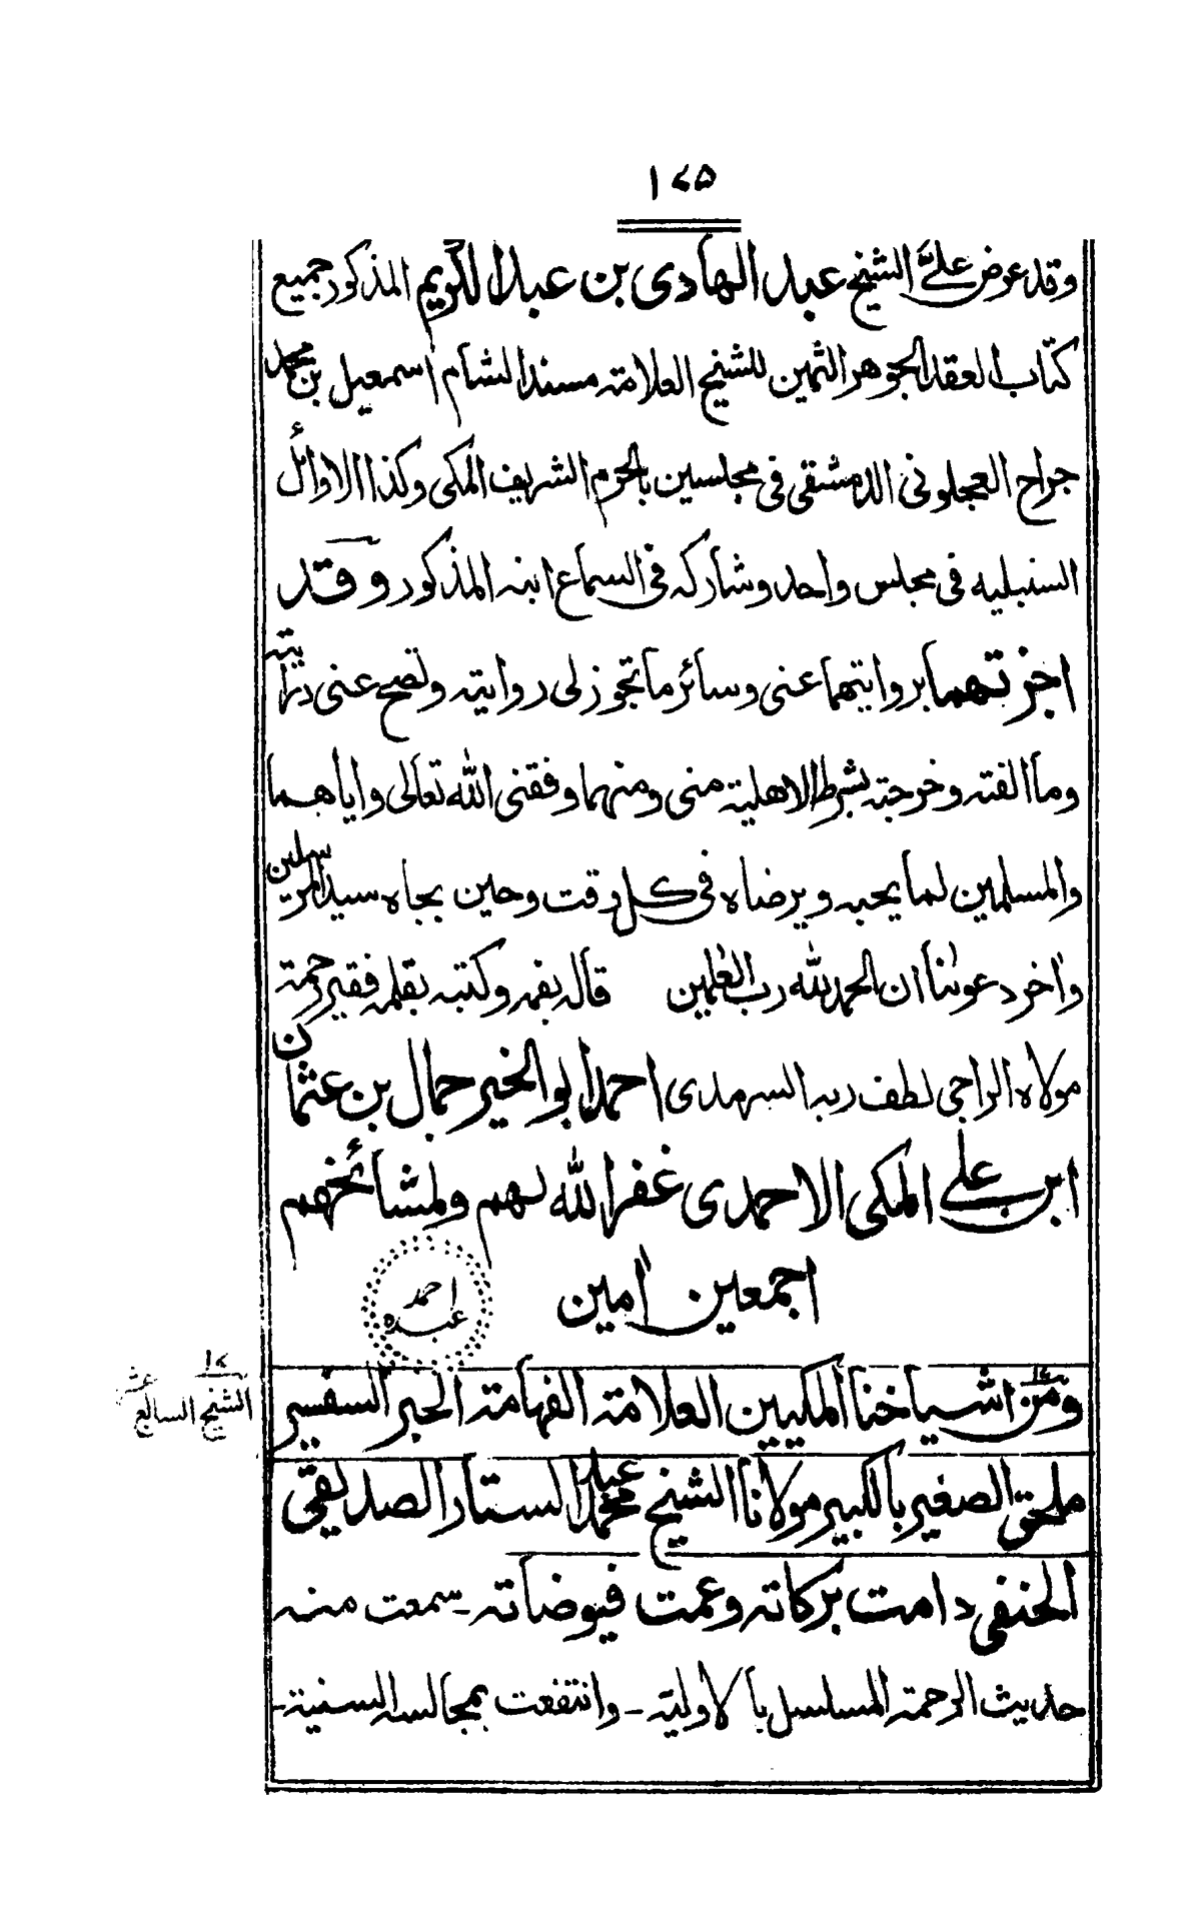 ١٧٥
وقد عرض علیَّ الشیخ عبد الهادی بن عبد الکریم المذکور جمیع
کتاب العقد الجوهر الثمین للشیخ العلامة مسند الشام اسمعیل بن محمد
جراح العجلونی الدمشقی فی مجلسین بالحرم الشریف المکی وکذا الاوائل
السنبلیه فی مجلس واحد وشارکه فی السماع ابنه المذکور وقد
اجزتهما بروایتهما عنی وسائر ما تجوز لی روایته وتصح عنی درایته
وما الفته وخرجته بشرط الاهلیة منی ومنهما وفقنی الله تعالی وایاهما
والمسلمین لما یحبه ویرضاه فی کل وقت وحین بجاه سید المرسلین
واٰخر دعوٰنا ان الحمد لله رب العٰلمین قاله بفمه وکتبه بقلمه فقیر رحمة
مولاه الراجی لطف ربه السرمدی احمد ابو الخیر جمال بن عثمان
ابن علی المکی الاحمدی غفر الله لهم ولمشائخهم
اجمعین اٰمین
احمد
عبده
ومن اشیاخنا المکیین العلامة الفهامة الحبر السفسیر
١٧
الشیخ السابع عشر
ملحق الصغیر بالکبیر مولانا الشیخ محمد عبد الستار الصدیقی
الحنفی دامت برکاته وعمت فیوضاته ـ سمعت منه
حدیث الرحمة المسلسل بالاولیة ـ وانتفعت بمجالسه السنیة ـ